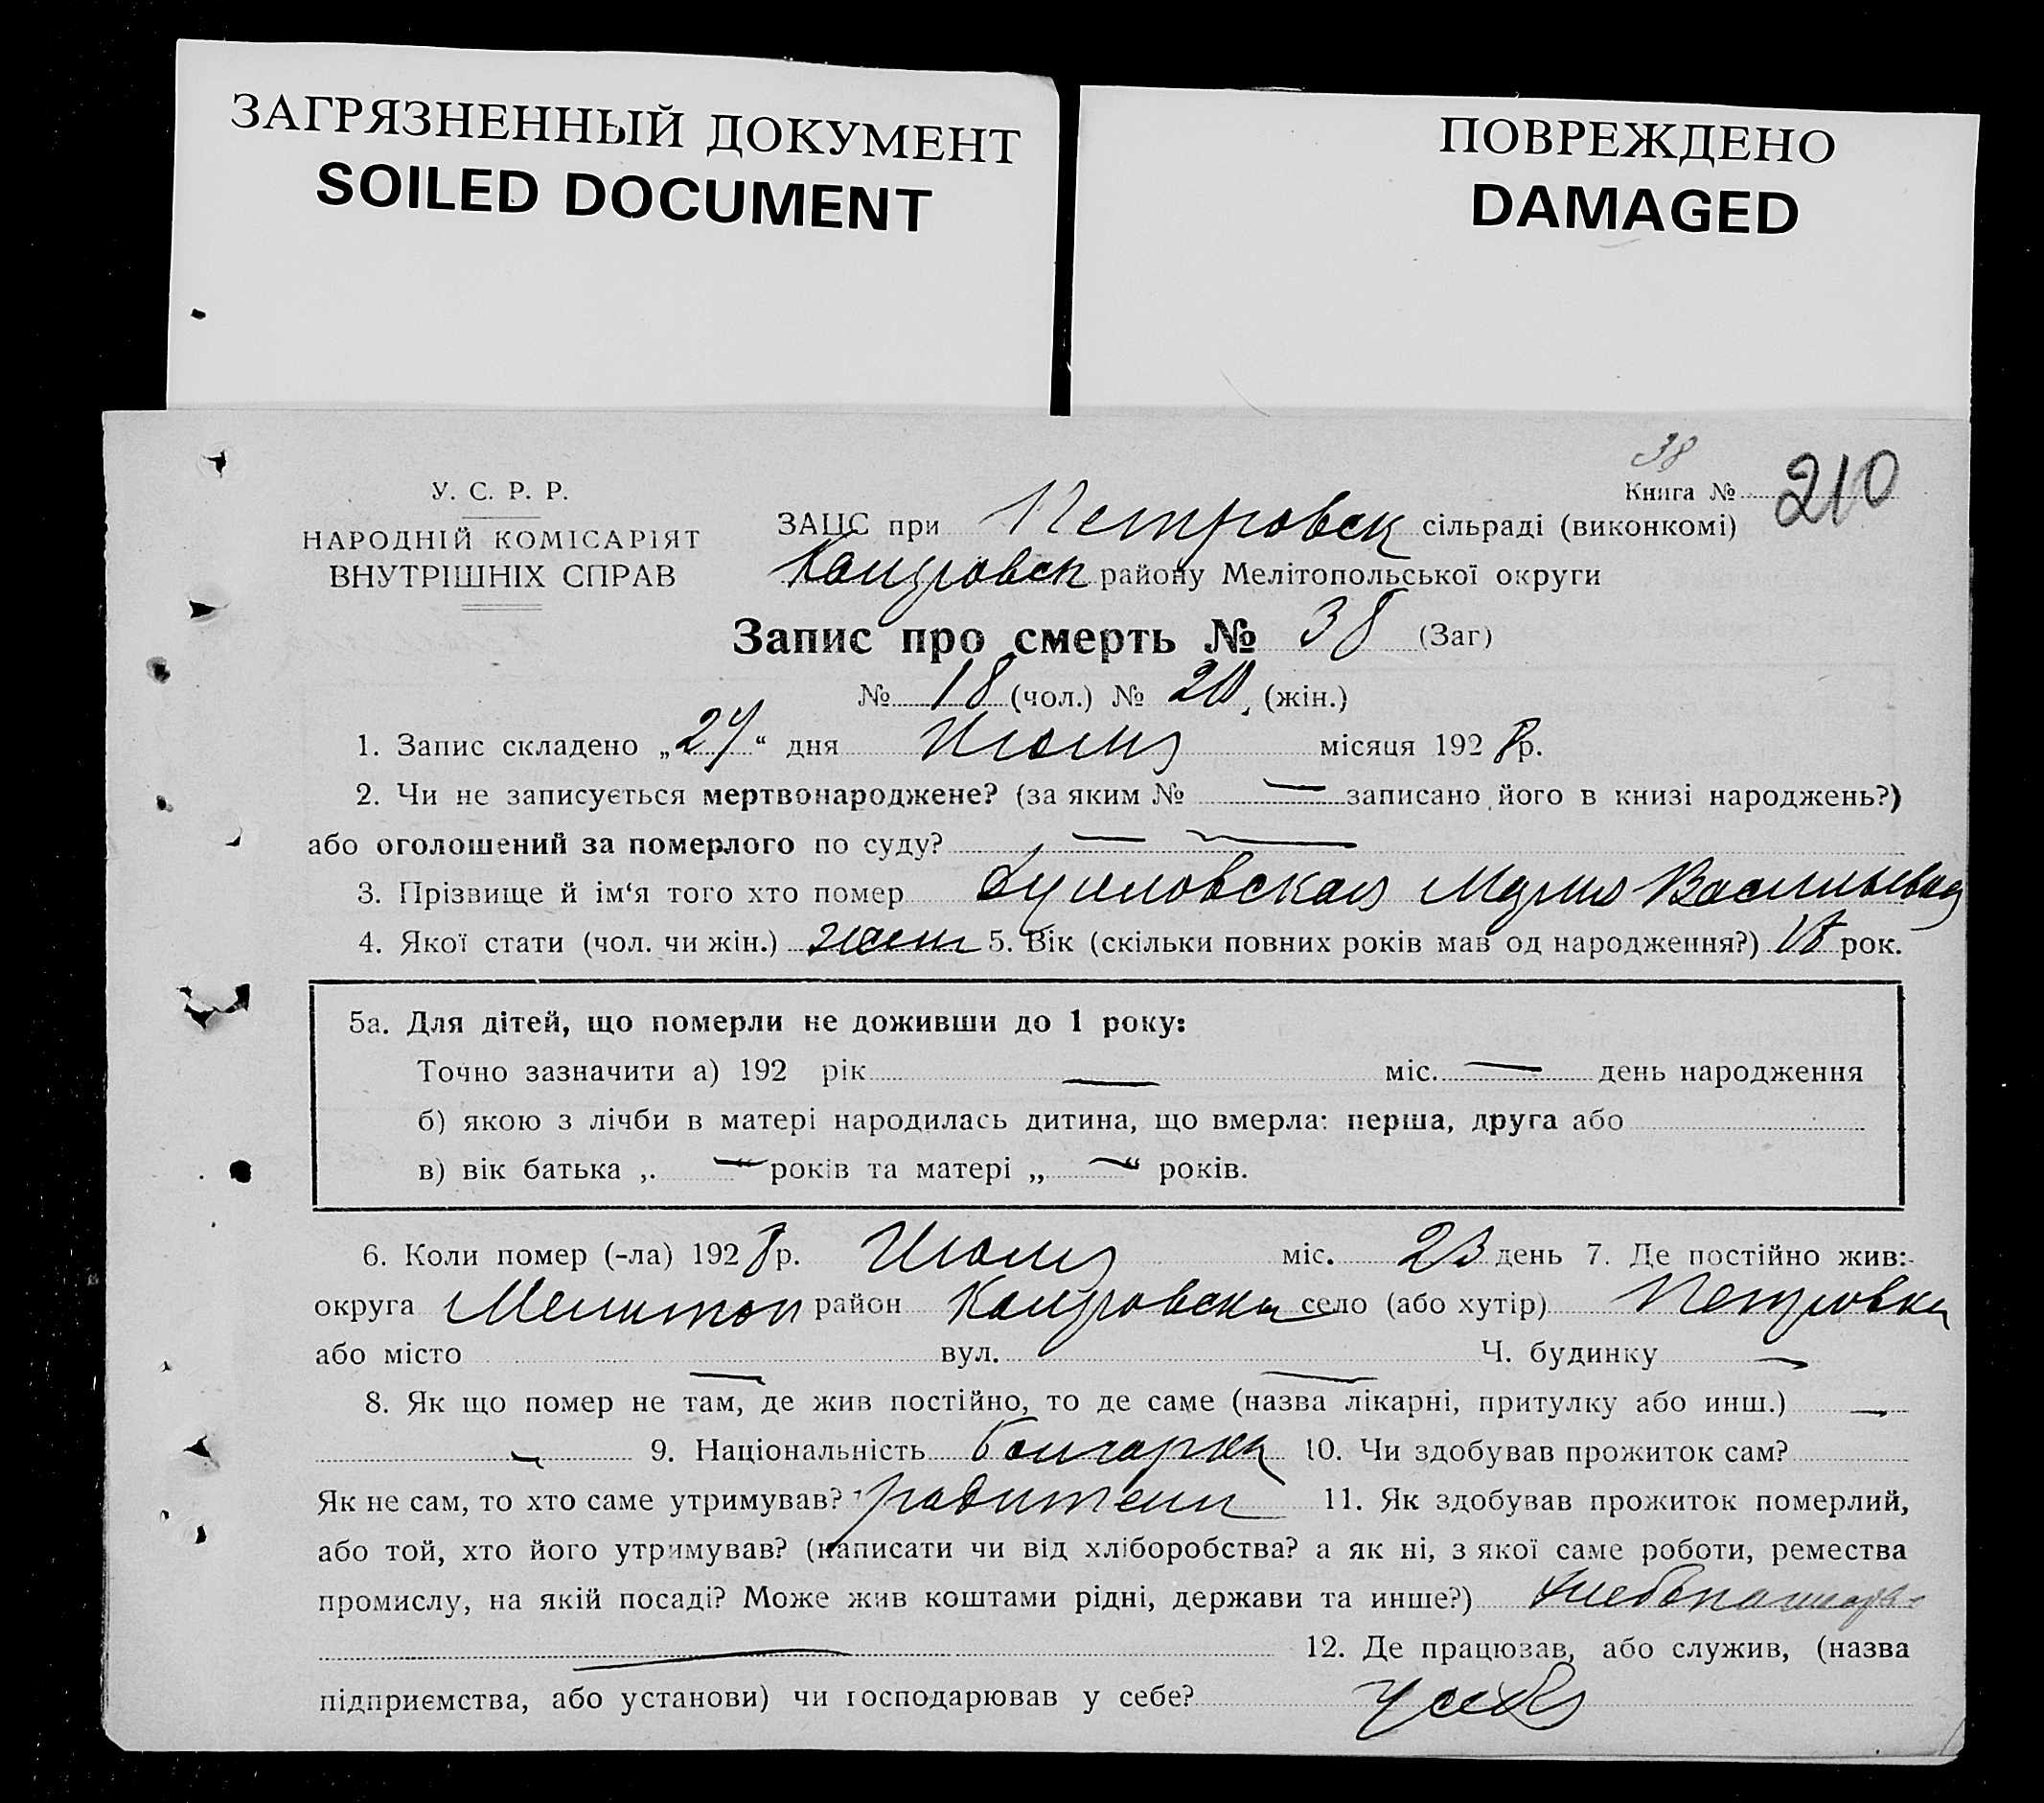 ЗАГРЯЗНЕННЫЙ ДОКУМЕНТ
SOILED DOCUMENT
ПОВРЕЖДЕНО
DAMAGED
38
У. С. Р. Р.
НАРОДНІЙ КОМІСАРІЯТ
ВНУТРІШНІХ СПРАВ
Книга № 210
ЗАЦС при Петровск сільраді (виконкомі)
району Мелітопольської округи
Запис про смерть № 38 (Заг)
№ 18 (чол.) № 20 (жін.)
1. Запис складено „27“ дня Июля місяця 1928 р.
2. Чи не записується мертвонароджене? (за яким № — записано його в книзі народжень?)
або оголошений за померлого по суду? — —
3. Прізвище й ім‘я того хто помер Мария Васильевна
4. Якої стати (чол. чи жін.) жен 5. Вік (скільки повних років мав од народження?) рок.
5а. Для дітей, що померли не доживши до 1 року:
Точно зазначити а) 192 рік — міс. — день народження
б) якою з лічби в матері народилась дитина, що вмерла: перша, друга або
в) вік батька „ — “ років та матері „ — “ років.
6. Коли помер (-ла) 1928 р. Июля міс. 23 день 7. Де постійно жив:
округа Мелитоп район село (або хутір) Петровка
або місто — вул. — Ч. будинку —
8. Як що помер не там, де жив постійно, то де саме (назва лікарні, притулку або инш.) —
— 9. Національність болгарка 10. Чи здобував прожиток сам?
Як не сам, то хто саме утримував? родители 11. Як здобував прожиток померлий,
або той, хто його утримував? (написати чи від хліборобства? а як ні, з якої саме роботи, ремества
промислу, на якій посаді? Може жив коштами рідні, держави та инше?)
— 12. Де працював, або служив, (назва
підприємства, або установи) чи господарював у себе? у себя